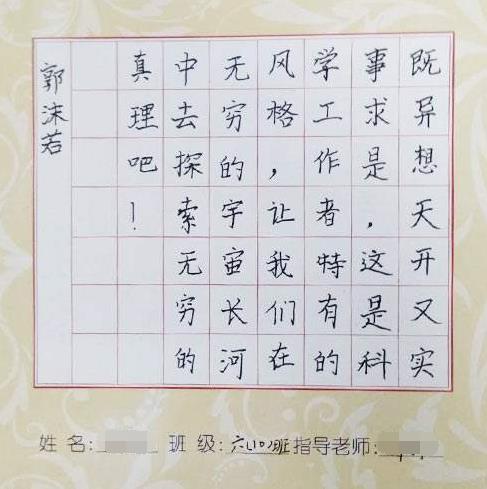 既异想天开又实
事求是，这是科
学工作者特有的
风格，让我们在
无穷的宇宙长河
中去探索无穷的
真理吧！
郭沫若
姓名: 班级:六(10)班指导老师: